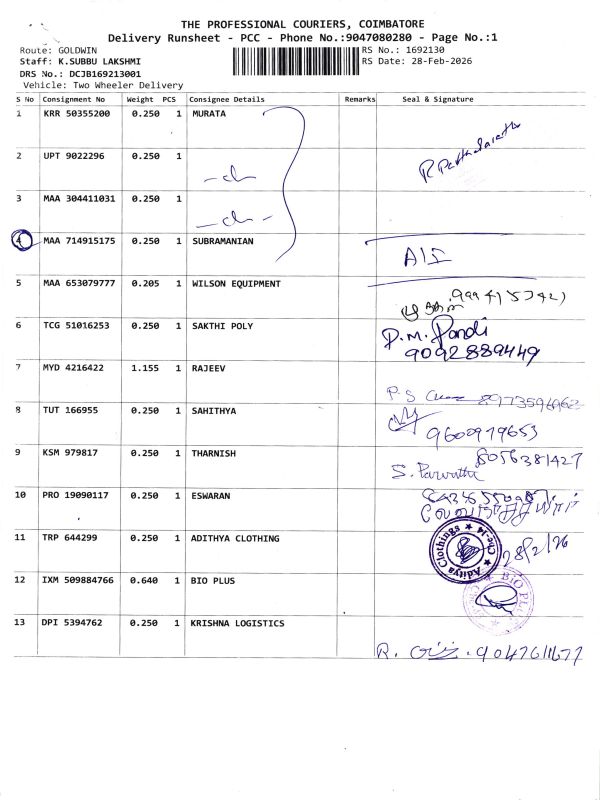 THE PROFESSIONAL COURIERS, COIMBATORE
Delivery Runsheet - PCC - Phone No.:9047080280 - Page No.:1
Route: GOLDWIN RS No.: 1692130
Staff: K.SUBBU LAKSHMI RS Date: 28-Feb-2026
DRS No.: DCJB169213001
Vehicle: Two Wheeler Delivery
S No Consignment No Weight PCS Consignee Details Remarks Seal & Signature
1 KRR 50355200 0.250 1 MURATA
2 UPT 9022296 0.250 1
3 MAA 304411031 0.250 1
4 MAA 714915175 0.250 1 SUBRAMANIAN
5 MAA 653079777 0.205 1 WILSON EQUIPMENT
6 TCG 51016253 0.250 1 SAKTHI POLY P.M. Pandi
9092889449
7 MYD 4216422 1.155 1 RAJEEV
P S 8973596962
8 TUT 166955 0.250 1 SAHITHYA
9600979653
9 KSM 979817 0.250 1 THARNISH 8056381427
S. Parvathi
10 PRO 19090117 0.250 1 ESWARAN
11 TRP 644299 0.250 1 ADITHYA CLOTHING Aditya Clothings 28/2/26
12 IXM 509884766 0.640 1 BIO PLUS BIO PLUS
13 DPI 5394762 0.250 1 KRISHNA LOGISTICS
R. 9047611677